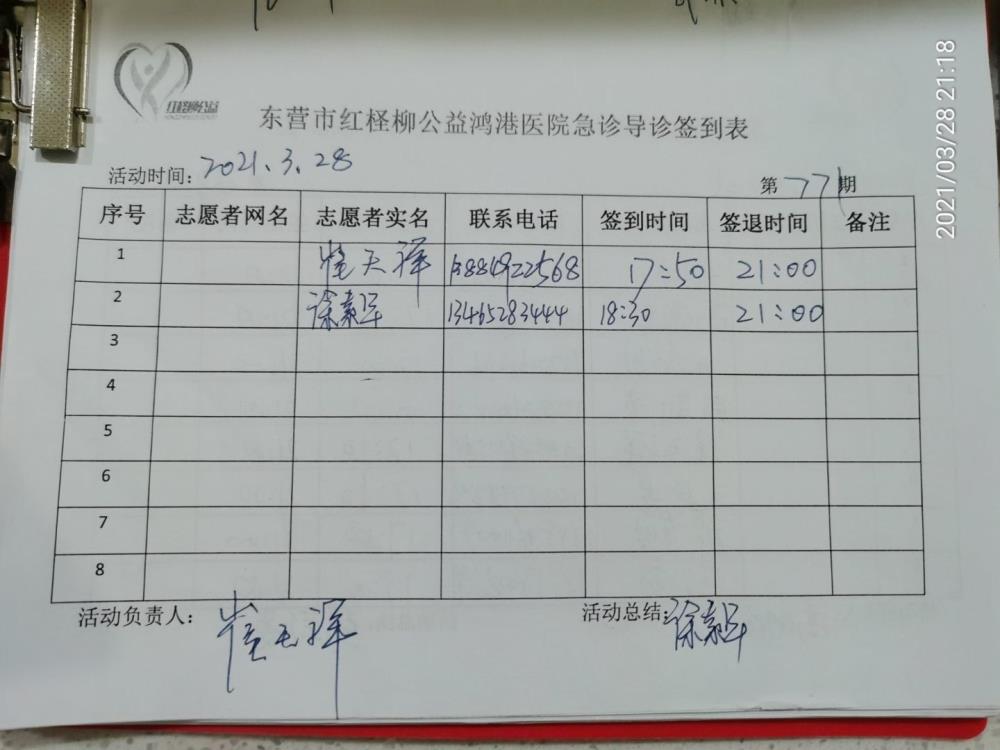 红柽柳公益
东营市红柽柳公益鸿港医院急诊导诊签到表
2021/03/28 21:18
活动时间：2021.3.28
第771期
序号 志愿者网名 志愿者实名 联系电话 签到时间 签退时间 备注
1 崔天祥 17:50 21:00
2 13465283444 18:30 21:00
3
4
5
6
7
8
活动负责人：崔天祥
活动总结：